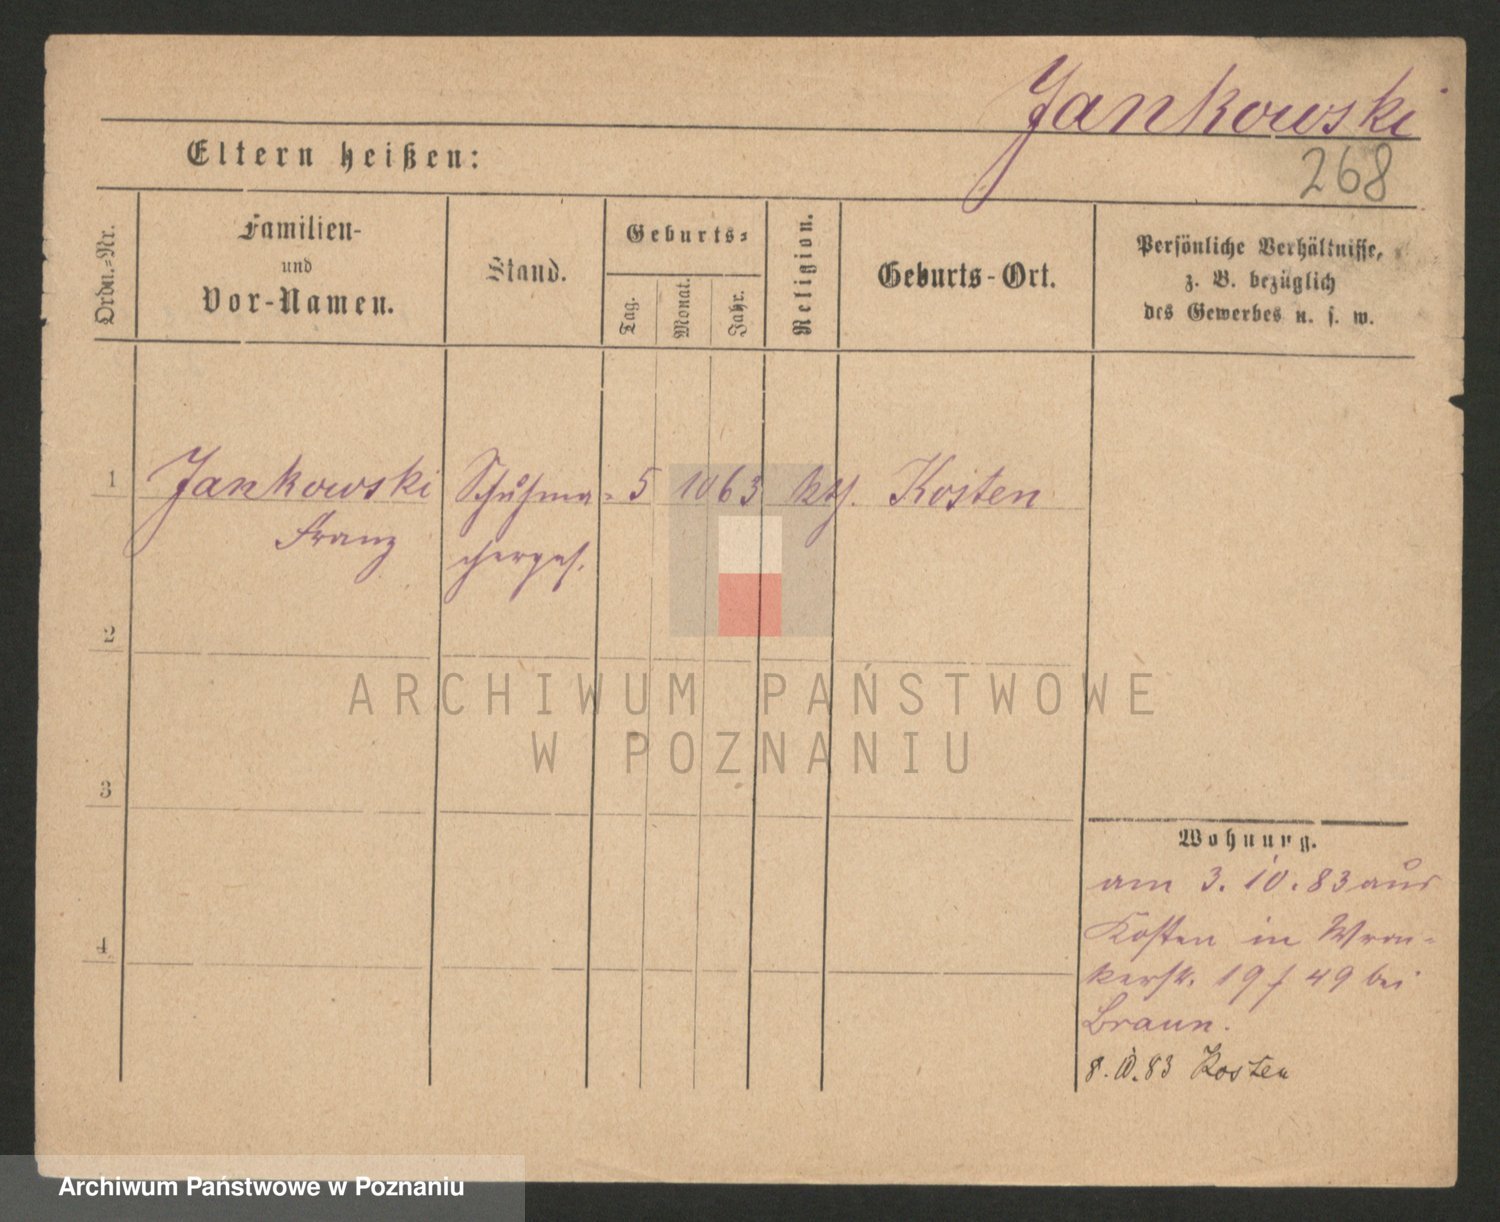 Jankowski
268
Eltern heißen:
Ordn.=Nr.
Familien-
und
Vor-Namen.
Stand.
Geburts=
Tag.
Monat.
Jahr.
Religion.
Geburts-Ort.
Persönliche Verhältnisse,
z. B. bezüglich
des Gewerbes u. s. w.
1 Jankowski Schuhma= 5 10 63 kth. Kosten
Franz cherges.
2
ARCHIWUM PAŃSTWOWE
W POZNANIU
3
Wohnung.
am 3. 10. 83 aus
Kosten in Wron=
4
kerstr. 19 / 49 bei
Braun.
8. 10. 83 Kosten
Archiwum Państwowe w Poznaniu